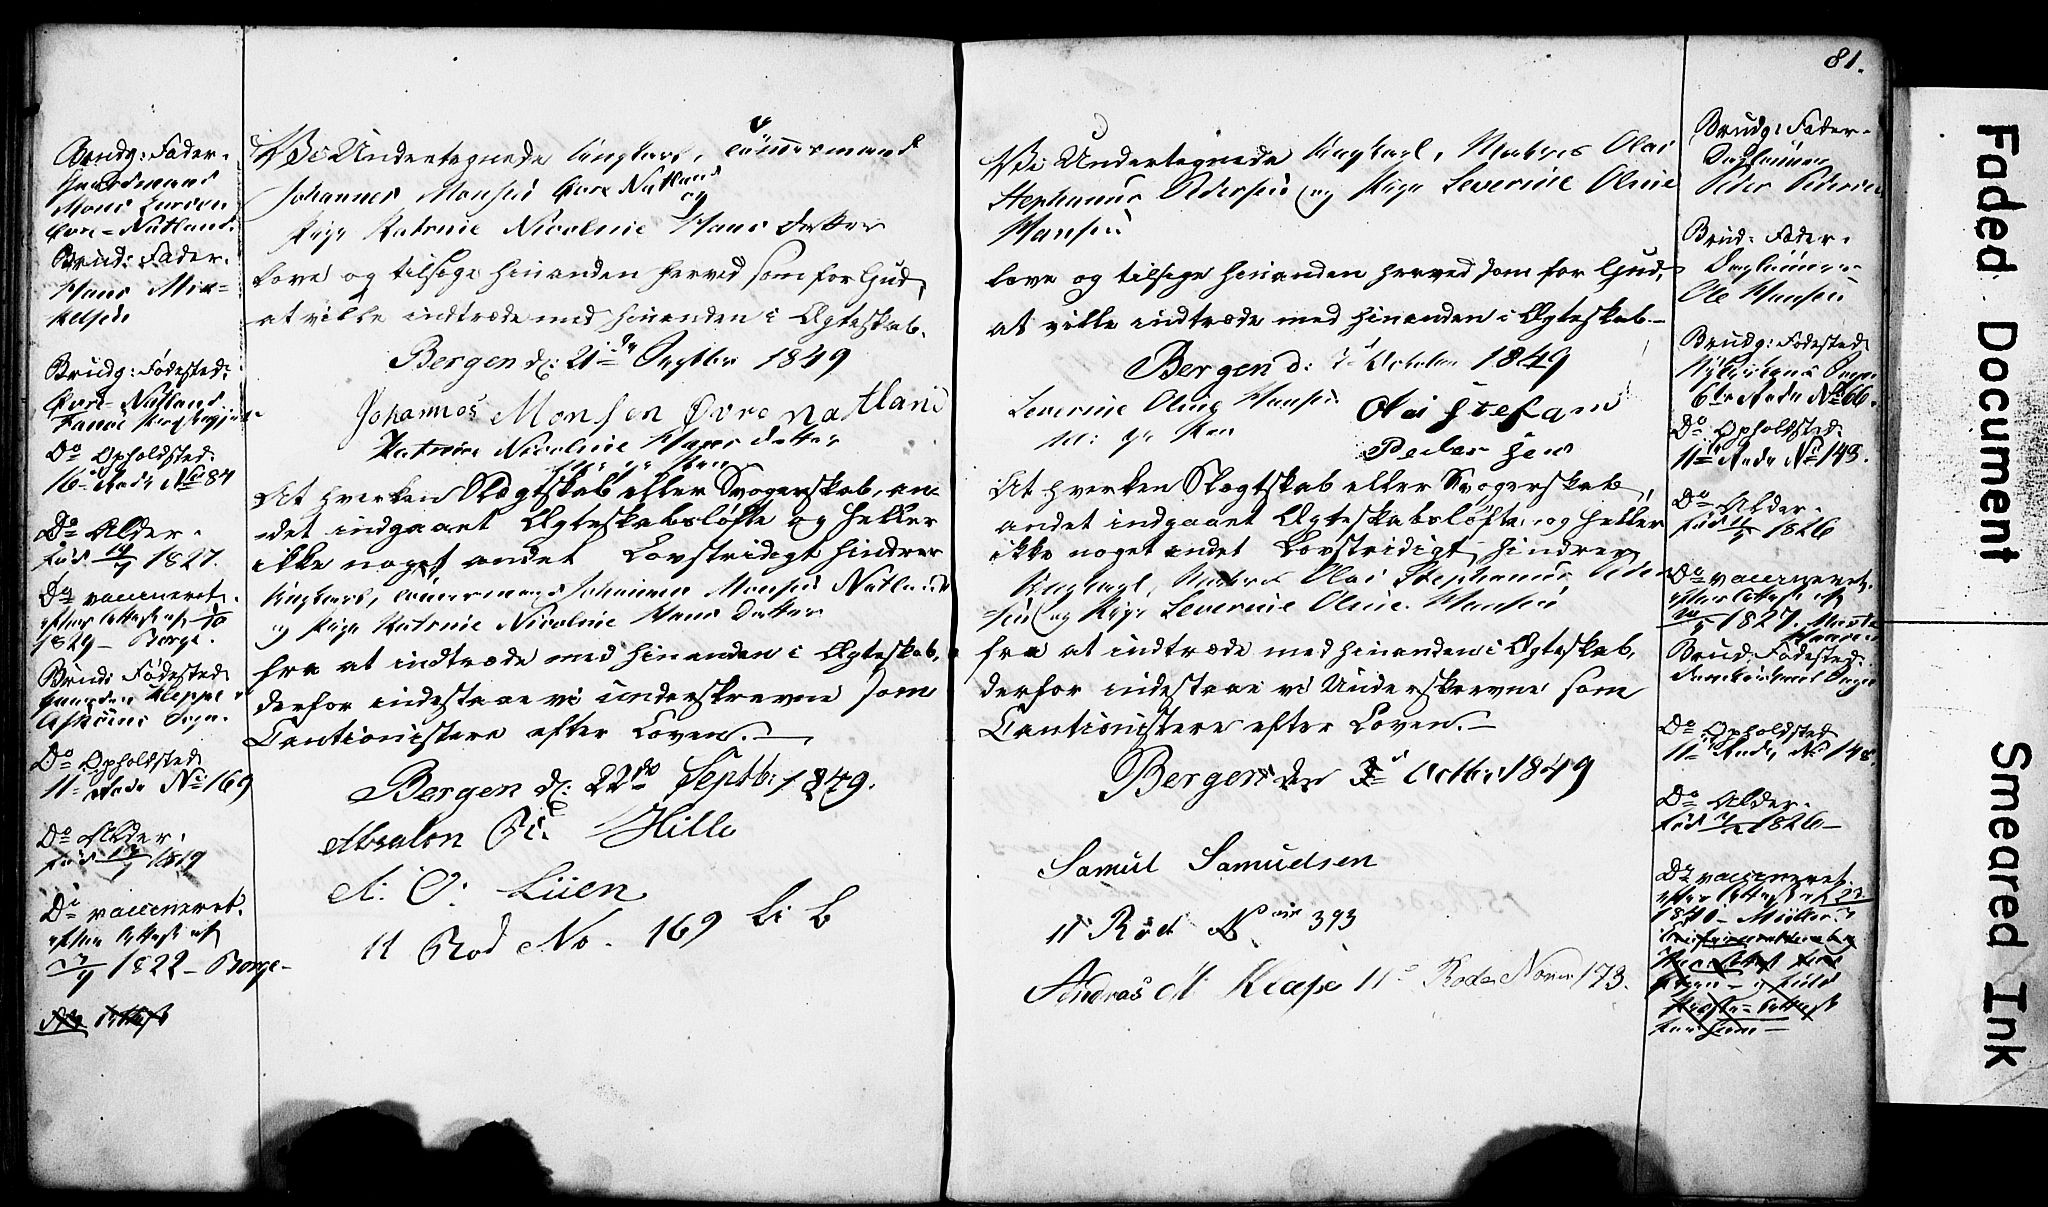 Brudg: Fader.
Gaardmand
Mons
Øvre-Natland.
Brud: Fader.
Hans Mik-
kelsen
Brudg: Födested:
Øvre-Natland
Fanöe
Do Opholdsted:
16de Rode No 84
Do Alder.
föd 1827.
Do vaccineret.
efter Attest af
1829 - Borge.
Brud: Födested
Gaarden Kleppe
Askøens Sogn.
Do Opholdsted
11te Rode No 169
Do Alder.
föd 1819
Do vaccineret.
efter Attest af
1822 - Borge-
Vi Undertegnede Ungkarl, Tömmermand
Johannes Monsen Øvre Natland
og
Pige Katrine Nicoline Hans datter
love og tilsige hinanden herved som for Gud,
at ville indtræde med hinanden i Ægteskab.
Bergen d: 21de Septbr 1849
Johannes Monsen Øvre Natland
Katrine Nicoline Hans datter
At hverken Slægtskab eller Svogerskab, an-
det indgaaet Ægteskabsløfte og heller
ikke noget andet Lovstridigt hindrer
Ungkarl, Tömmermand Johannes Monsen Natland
og Pige Katrine Nicoline Hans Datter
fra at indtræde med hinanden i Ægteskab,
derfor indestaae vi underskrevne som
Cautionister efter Loven.
Bergen d: 22de Septbr 1849.
Absalon Hille
A: O: Lüen
11 Rod No. 169 Li B
81.
Vi Undertegnede Ungkarl, Matros Olai
Stephanus Pedersen og Pige Severine Oline
Hansen
love og tilsige hinanden herved som for Gud,
at ville indtræde med hinanden i Ægteskab.-
Bergen d: October 1849
Severine Oline Hansen Olai Stefanus
Peder sen
At hverken Slægtskab eller Svogerskab,
andet indgaaet Ægteskabsløfte, og heller
ikke noget andet Lovstridigt, hindrer
Ungkarl, Matros Olai Stephanus Peder-
sen og Pige Severine Oline Hansen
fra at indtræde med hinanden i Ægteskab,
derfor indestaae vi Underskrevne som
Cautionistere efter Loven.-
Bergen den 3de Octbr 1849
Samul Samuelsen
11 Rod No 393
Andreas M: 11te Rode Nomer 173.
Brudg: Fader.
Dagleiner
Peder Pedersen
Brud: Fader.
Dagleiner
Ole Hansen
Brudg: Födested
6te Rode No 66.
Do Opholdsted:
11te Rode No 148.
Do Alder.
föd 1826
Do vaccineret.
efter Attest af
1827.
Brud: Födested:
Domkirkens Sogn
Do Opholdsted
11te Rode No 148
Do Alder.
föd 1826-
Do vaccineret.
efter Attest af
1840-
Faded Document
Smeared Ink